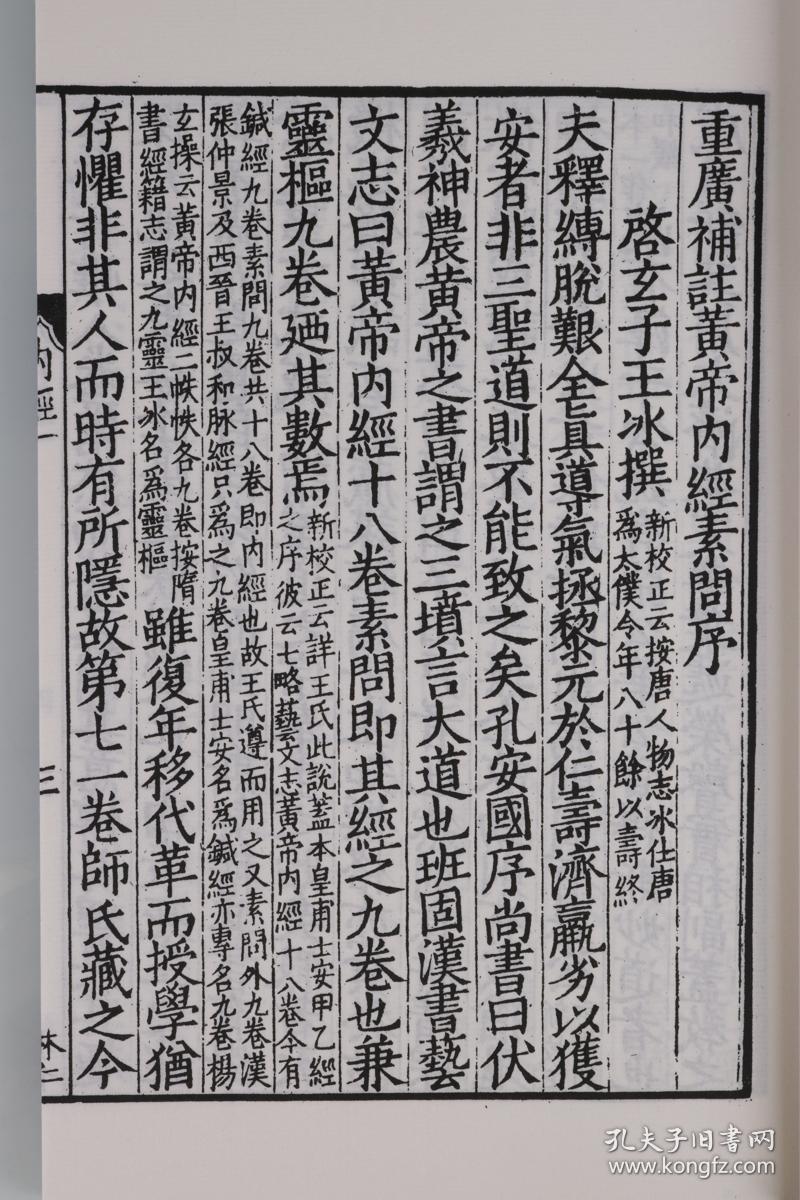 重廣補註黃帝內經素問序
啓玄子王冰撰
新校正云按唐人物志冰仕唐
爲太僕令年八十餘以壽終
夫釋縛脫艱全眞導氣拯黎元於仁壽濟羸劣以獲
安者非三聖道則不能致之矣孔安國序尚書曰伏
羲神農黃帝之書謂之三墳言大道也班固漢書藝
文志曰黃帝內經十八卷素問即其經之九卷也兼
靈樞九卷廼其數焉
新校正云詳王氏此說蓋本皇甫士安甲乙經
之序彼云七略藝文志黃帝內經十八卷今有
鍼經九卷素問九卷共十八卷即內經也故王氏遵而用之又素問外九卷漢
張仲景及西晉王叔和脉經只爲之九卷皇甫士安名爲鍼經亦專名九卷楊
玄操云黃帝内經二帙帙各九卷按隋
書經籍志謂之九靈王冰名爲靈樞
雖復年移代革而授學猶
存懼非其人而時有所隱故第七一卷師氏藏之今
內經一
三
孔夫子旧书网
www.kongfz.com